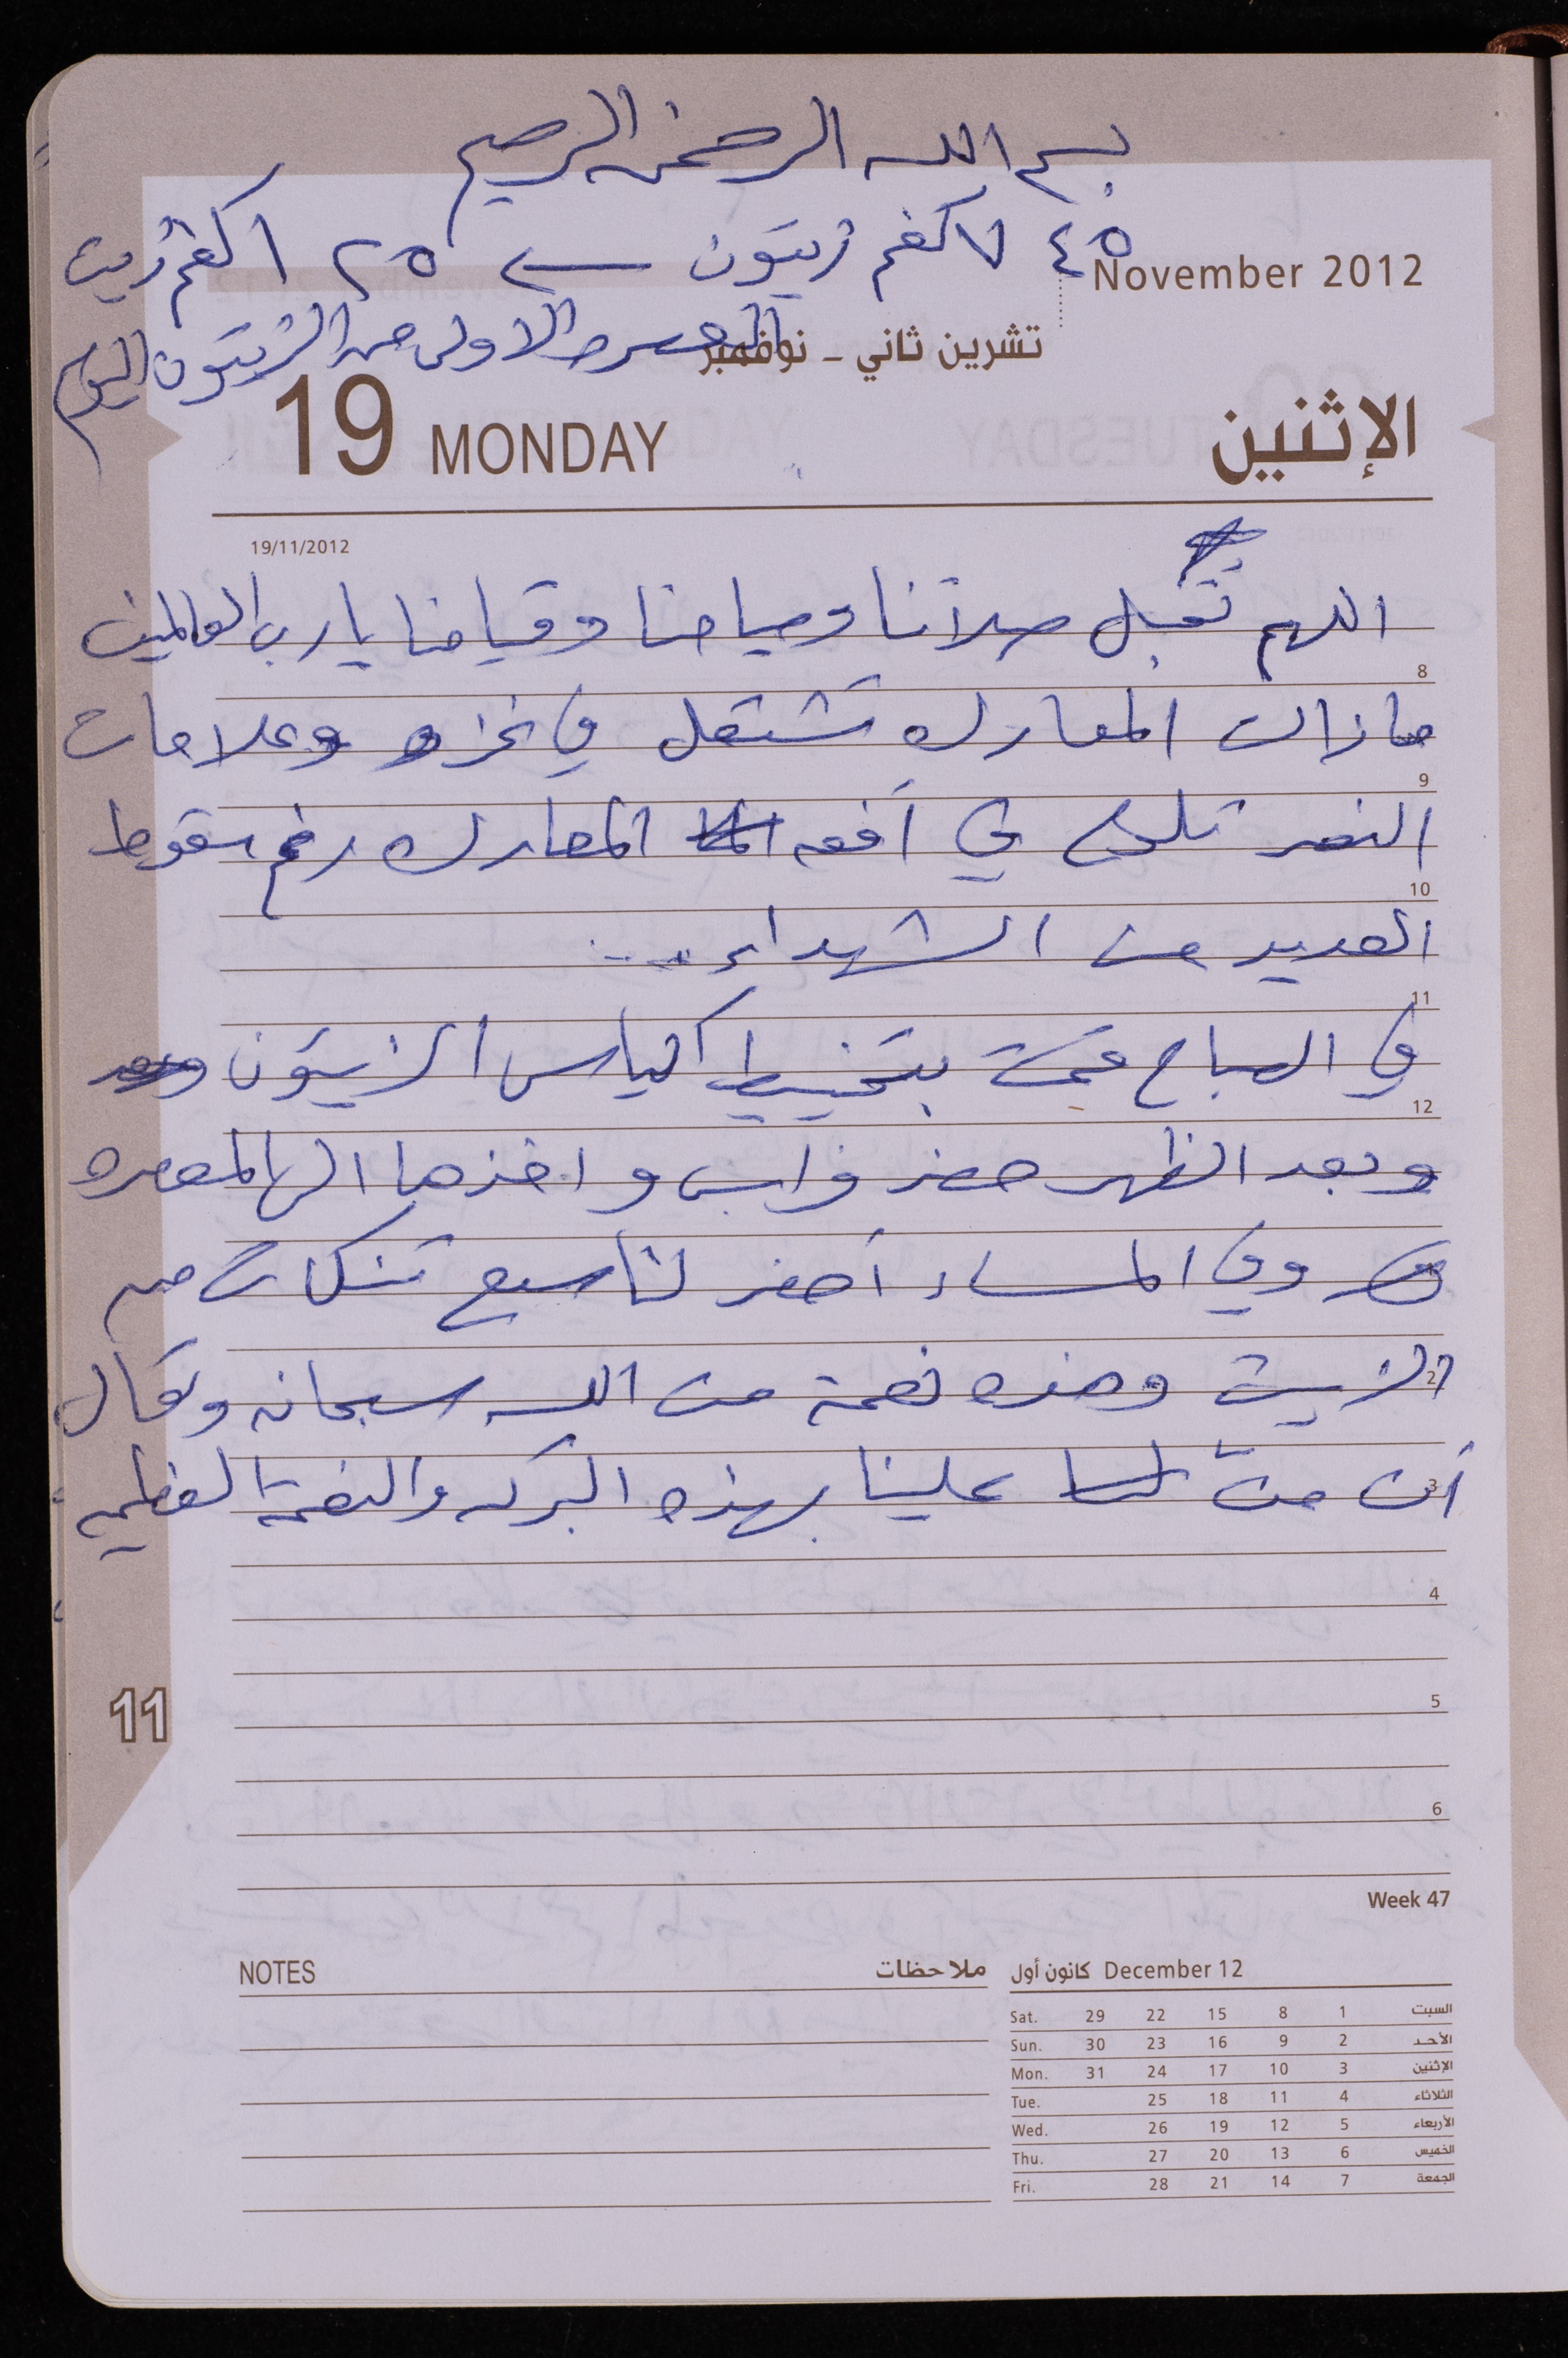 بسم الله الرحمن الرحيم
كغم زيتون ← ١٢٥ كغم زيت
November 2012
الاولى من الزيتون اليوم
تشرين ثاني - نوفمبر
19 MONDAY الإثنين
19/11/2012
اللهم تقبل صلاتنا وصيامنا وقيامنا يا رب العالمين
8
ما زالت المعارك تشتعل في غزه وعلامات
9
النصر تلوح في أفق المعارك رغم سقوط
10
العديد من الشهداء ...
11
في الصباح قمت بتخييط اكياس الزيتون
12
وبعد الظهر حضر فراس واخذها الى المعصره
وفي المساء أحضر لنا سبع تنكات من
2
الزيت وهذه نعمة من الله سبحانه وتعالى
3
أن منّ علينا بهذه البركه والنعمة العظيمه
4
11
5
6
Week 47
NOTES ملاحظات
December 12 كانون أول
Sat. 29 22 15 8 1 السبت
Sun. 30 23 16 9 2 الأحد
Mon. 31 24 17 10 3 الإثنين
Tue. 25 18 11 4 الثلاثاء
Wed. 26 19 12 5 الأربعاء
Thu. 27 20 13 6 الخميس
Fri. 28 21 14 7 الجمعة